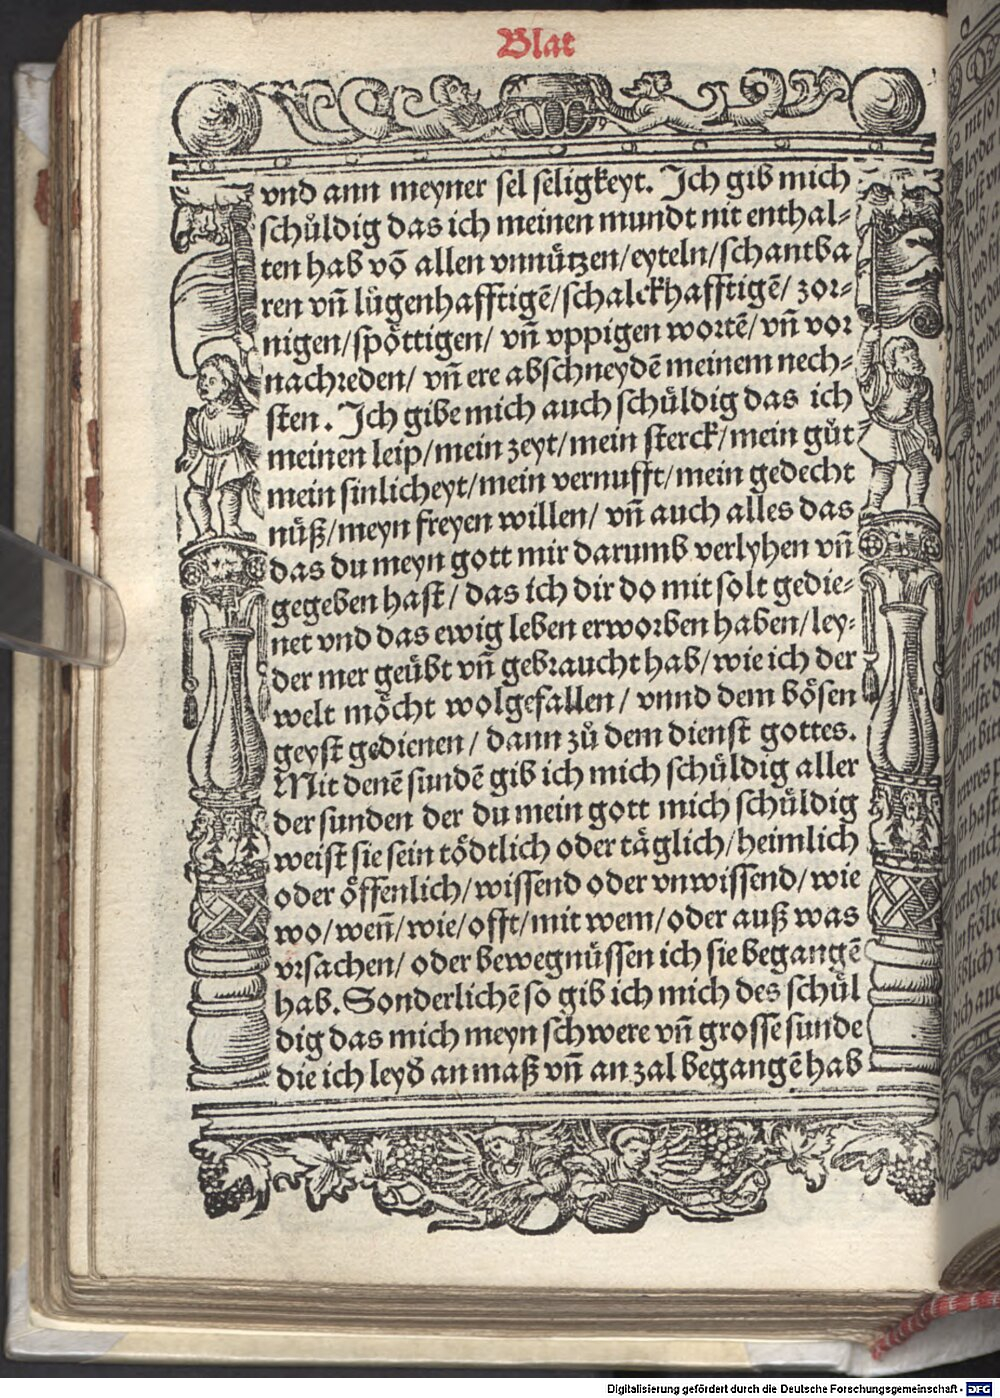 Blat
vnd ann meyner sel seligkeyt. Ich gib mich
schuͤldig das ich meinen mundt nit enthal⸗
ten hab võ allen vnnuͤtzen/eyteln/schantba
ren vñ luͤgenhafftigẽ/schalckhafftigẽ/ zor⸗
nigen/spoͤttigen/ vñ vppigen wortẽ/vñ vor
nachreden/ vñ ere abschneydẽ meinem nech⸗
sten. Ich gibe mich auch schuͤldig das ich
meinen leip/mein zeyt/mein sterck/mein guͤt
mein sinlicheyt/mein vernufft/mein gedecht
nuͤß/meyn freyen willen/ vñ auch alles das
das du meyn gott mir darumb verlyhen vñ
gegeben hast/ das ich dir do mit solt gedie⸗
net vnd das ewig leben erworben haben/ley⸗
der mer geuͤbt vñ gebraucht hab/wie ich der
welt moͤcht wolgefallen/ vnnd dem boͤsen
geyst gedienen/ dann zuͦ dem dienst gottes.
Mit denẽ sundẽ gib ich mich schuͤldig aller
der sunden der du mein gott mich schuͤldig
weist sie sein toͤdtlich oder taͤglich/heimlich
oder oͤffenlich/wissend oder vnwissend/wie
wo/weñ/wie/offt/mit wem/oder auß was
vrsachen/ oder bewegnuͤssen ich sie begangẽ
hab. Sonderlichẽ so gib ich mich des schuͤl
dig das mich meyn schwere vñ grosse sunde
die ich leyd̕ an maß vñ an zal begangẽ hab
Digitalisierung gefördert durch die Deutsche Forschungsgemeinschaft - DFG